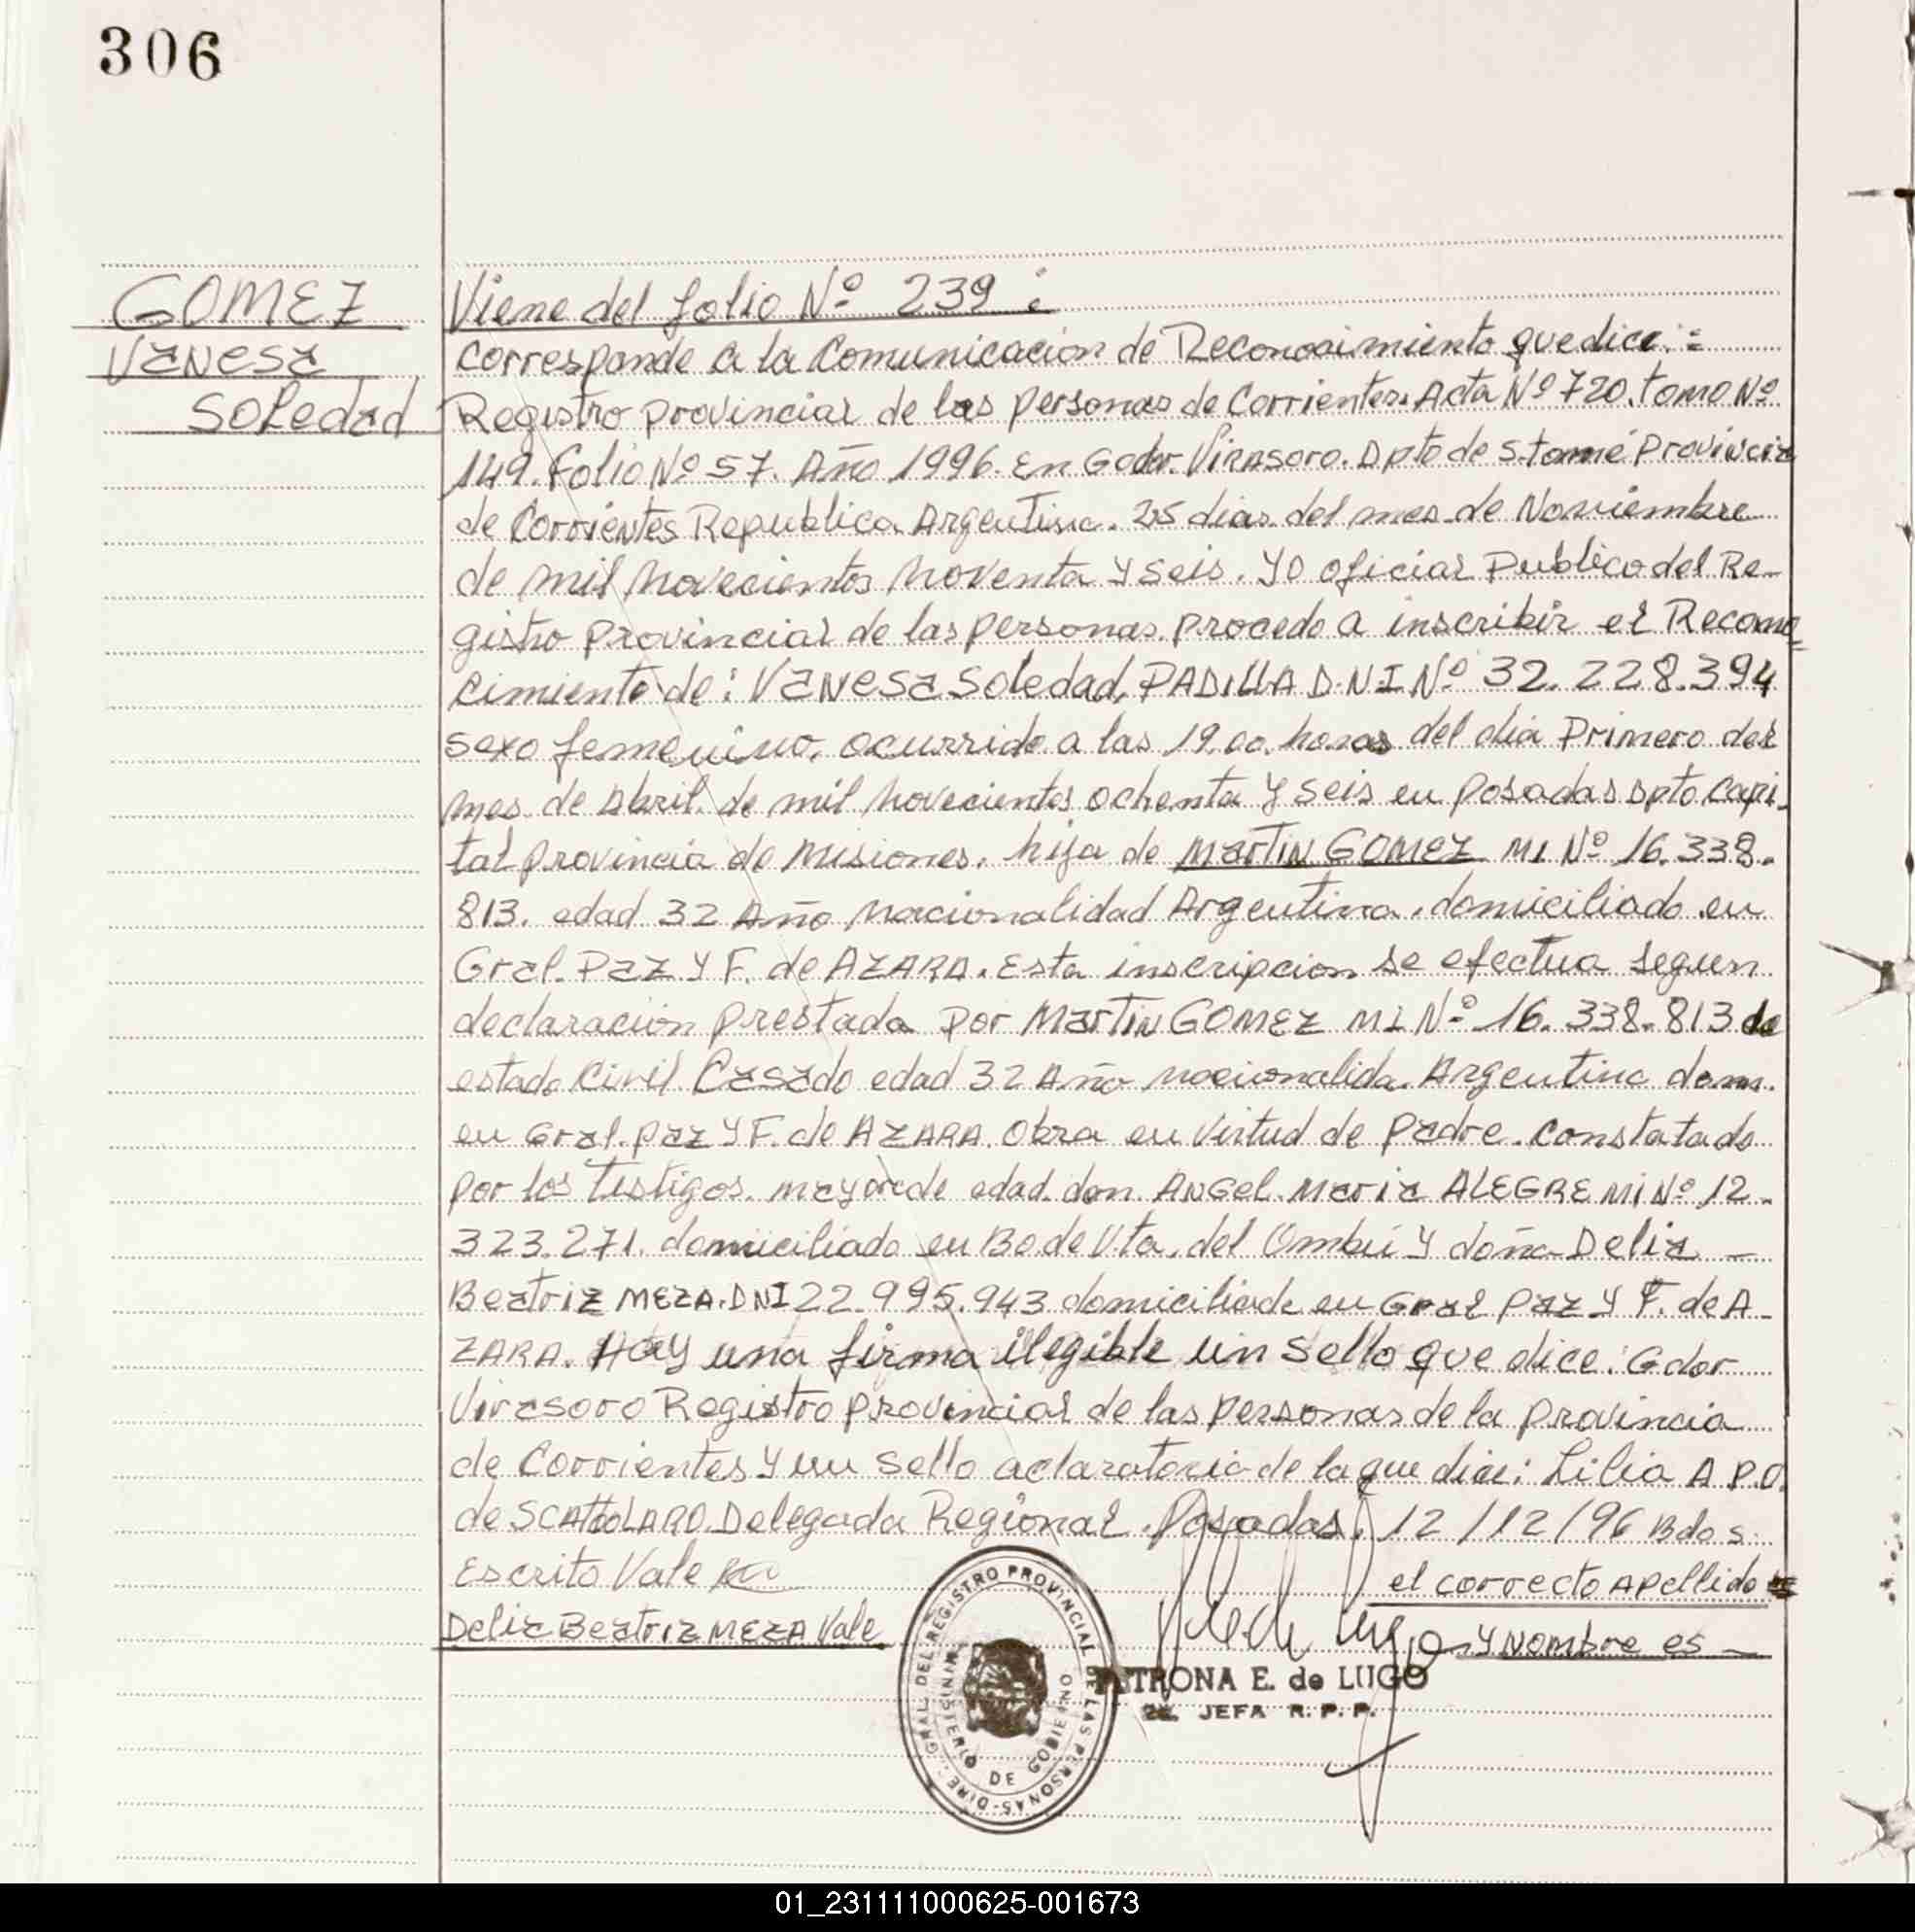 306
GOMEZ
Vanesa
Soledad
Viene del folio Nº 239 :
corresponde a la Comunicación de Reconocimiento que dice :=
Registro provincial de las personas de Corrientes. Acta Nº 720. tomo Nº
149. folio Nº 57. Año 1996. En Gdor. VIRASORO. Dpto de S. tomé Provincia
de Corrientes Republica Argentina. 25 dias del mes de Noviembre
de mil novecientos noventa y seis. Yo oficial Publico del Re-
gistro provincial de las personas procedo a inscribir el Recono-
cimiento de: Vanesa Soledad, PADILLA D.N.I Nº 32.228.394
sexo femenino. ocurrido a las 19.00. horas del dia Primero del
mes de Abril. de mil novecientos ochenta y seis en Posadas Dpto Capi-
tal provincia de Misiones. hija de Martin GOMEZ MI Nº 16.338.
813. edad 32 Año nacionalidad Argentina. domiciliado en
Gral. Paz y F. de AZARA. Esta inscripcion se efectua segun
declaración prestada por Martin GOMEZ MI Nº 16.338.813 de
estado Civil Casado edad 32 Año nacionalida. Argentina dom.
en Gral. paz y F. de AZARA. Obra en virtud de padre. constatado
por los testigos. mayor de edad. don. Angel. Maria ALEGRE MI Nº 12.
323.271. domiciliado en Bo de Vta. del Ombú y doña Delia -
Beatriz MEZA. DNI 22.995.943 domiciliada en Gral Paz y F. de A-
ZARA. Hay una firma ilegible un sello que dice: Gdor
Virasoro Registro provincial de las personas de la provincia
de Corrientes y un sello aclaratorio de la que dice: Lilia A P.O.
de SCATTOLARO. Delegada Regional. Posadas, 12/12/96 Bdo s.
Escrito Vale
el correcto Apellido
Delia Beatriz MEZA Vale
y Nombre es -
PETRONA E. de LUGO
2a. JEFA R.P.P.
DIRE. GRAL. DEL REGISTRO PROVINCIAL DE LAS PERSONAS
MINISTERIO DE GOBIERNO
01_231111000625-001673